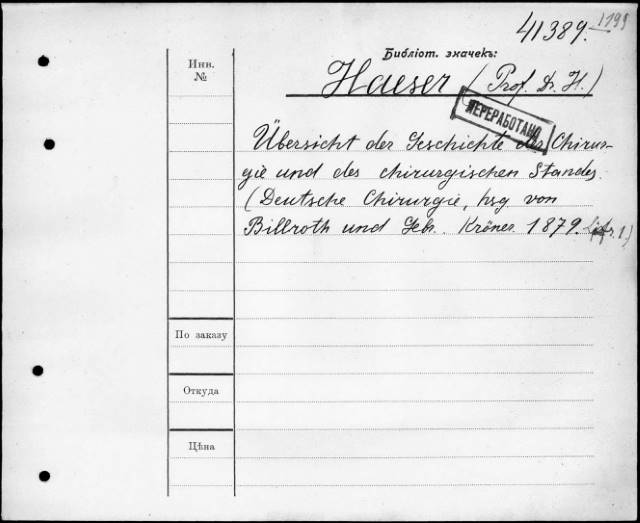 41389. 1199
Библіот. значекъ:
Инв. №
Haeser (Prof. Dr. H.)
ПЕРЕРАБОТАНО
Übersicht der Geschichte der Chirur-
gie und des chirurgischen Standes.
(Deutsche Chirurgie, hsg von
Billroth und Gebr. Kröner. 1879. Lifr. 1.)
По заказу
Откуда
Цѣна